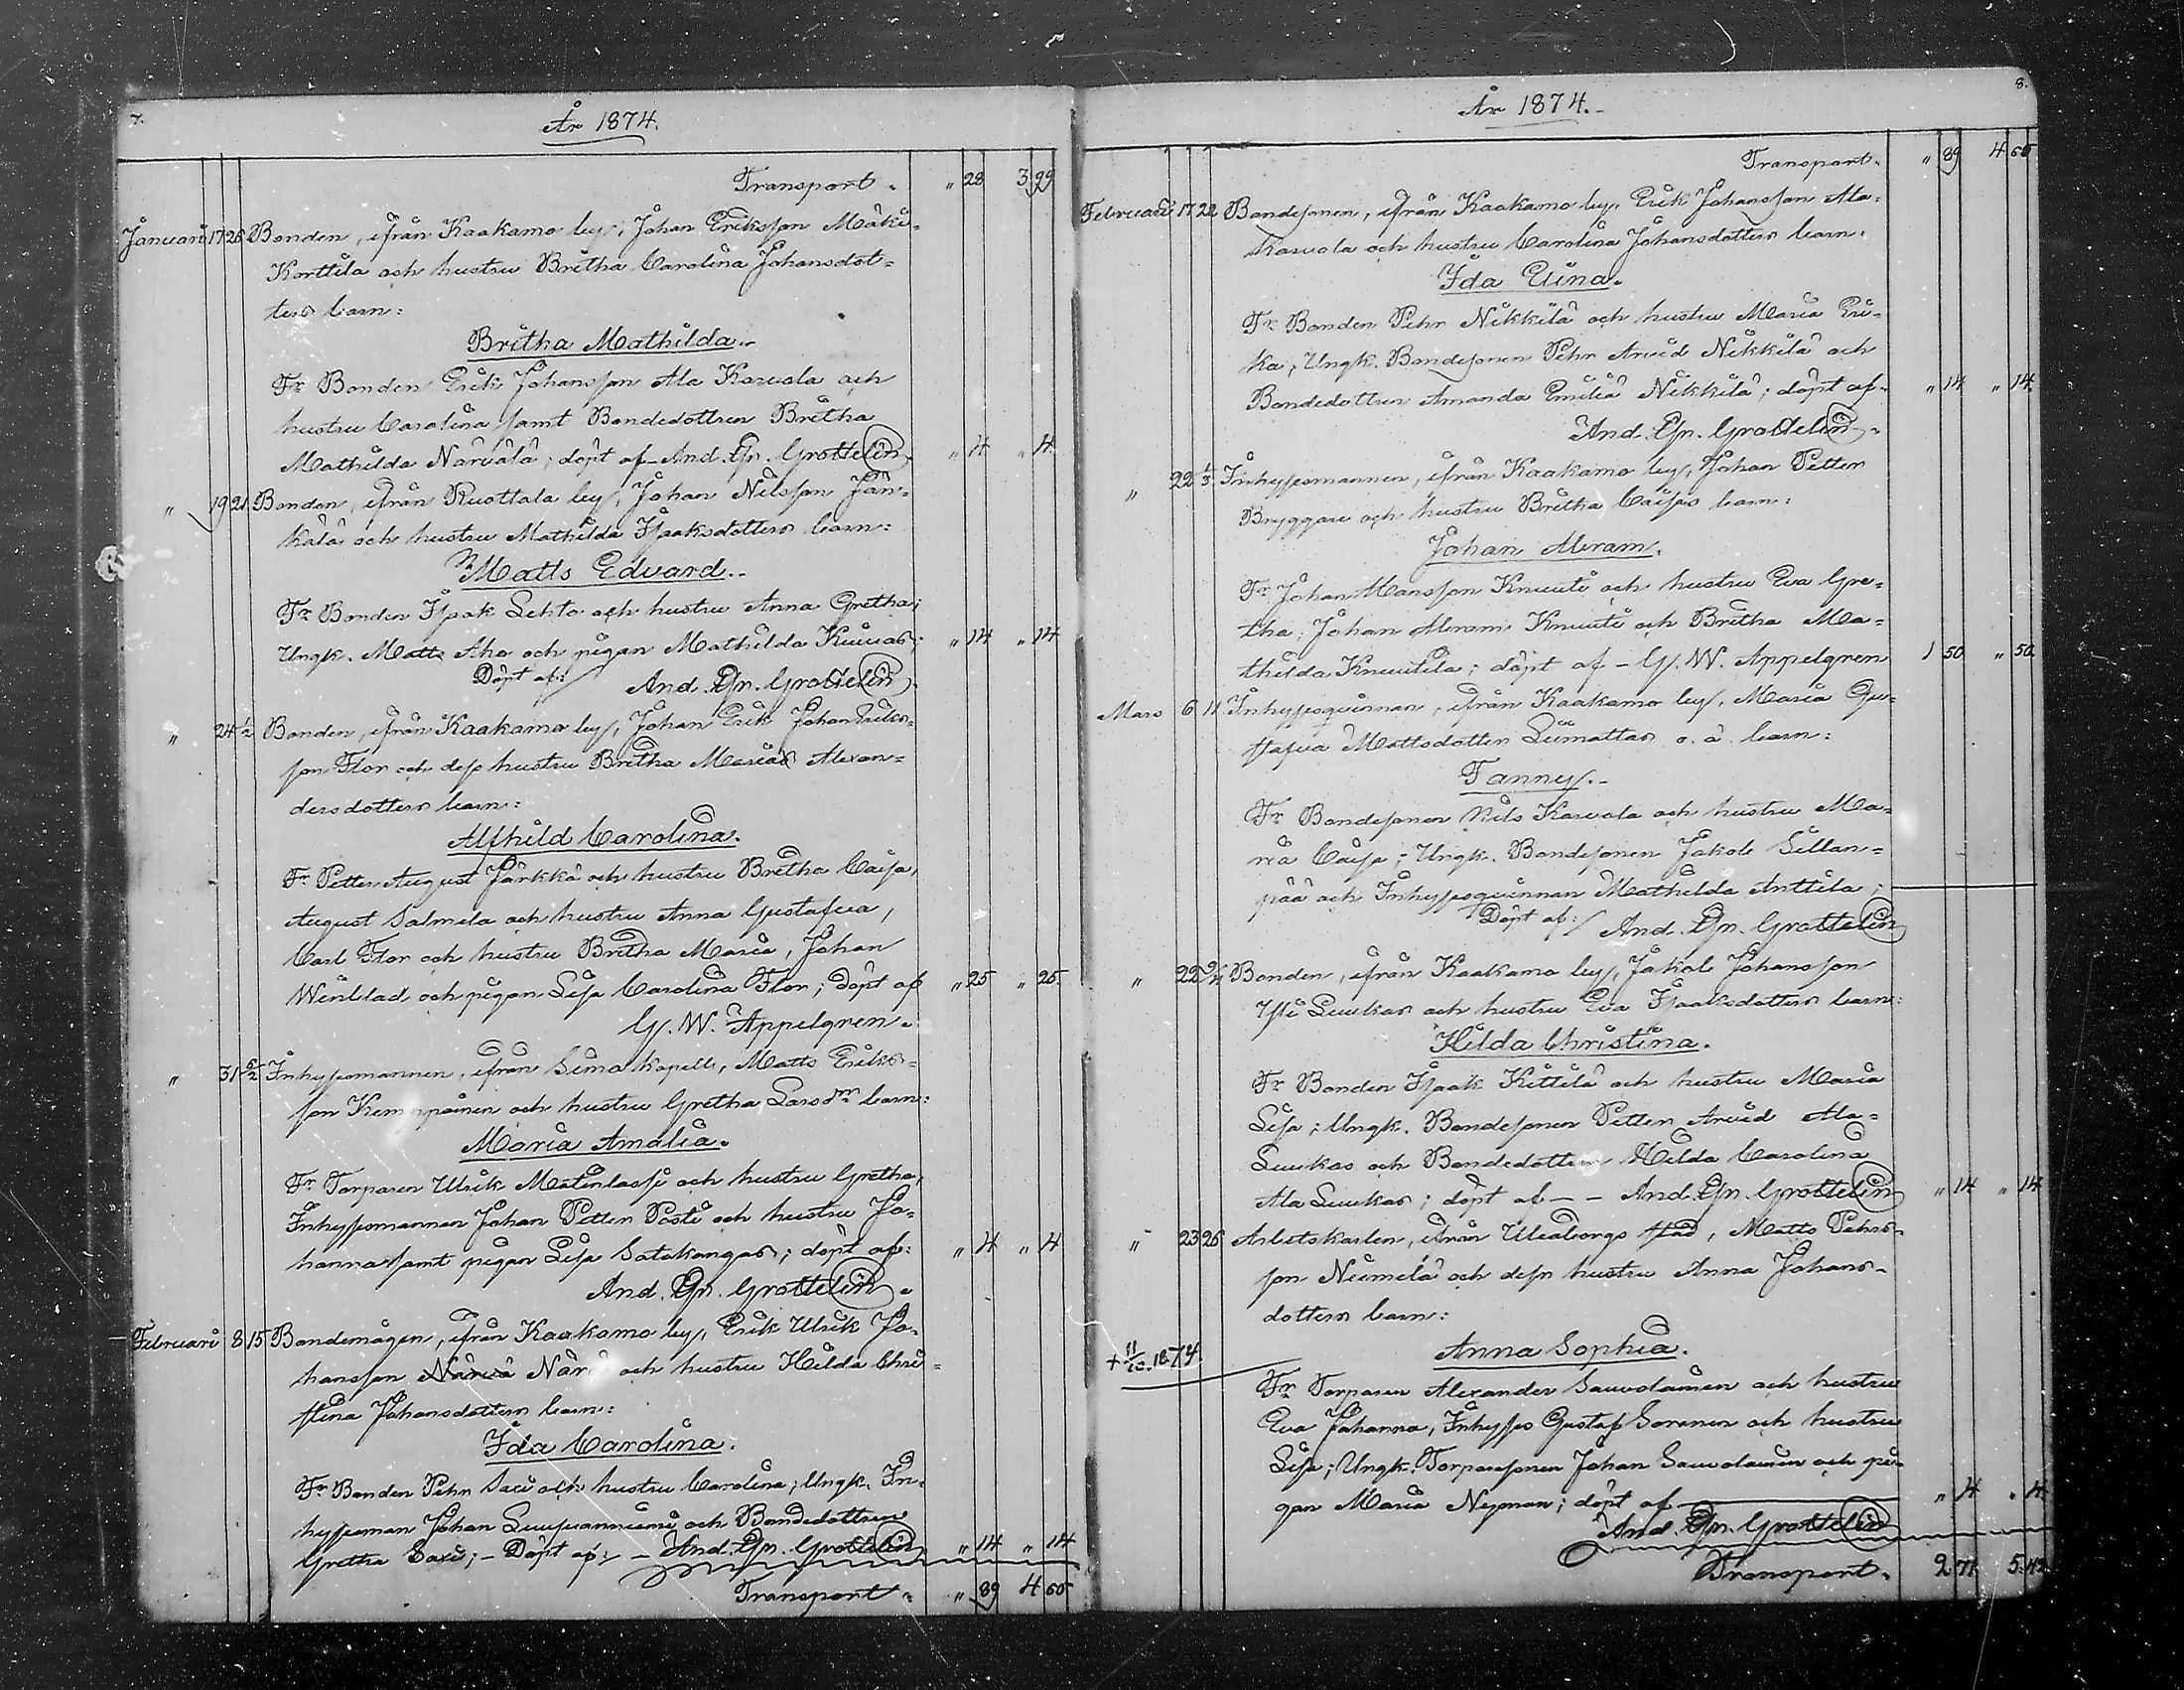 7.
År 1874.
Transport. „ 28 3 99
Januari 17 25 Bonden, ifrån Kaakamo by, Johan Eriksson Mäki-
Korttila och hustru Britha Carolina Johansdot-
ters barn:
Britha Mathilda.
Fr Bonden Erik Johansson Ala Karvola och
hustru Carolina samt Bondedottren Britha
Mathilda Närvälä; döpt af And. Gr. Grottelin. „ 4 „ 4.
„ 19 21 Bonden, ifrån Ruottala by, Johan Nilsson Jän-
kälä och hustru Mathilda Isaaksdotters barn:
Matts Edvard.
Fr Bonden Isak Lehto och hustru Anna Gretha;
Ungk. Matts Aho och pigan Mathilda Kuivas; „ 14 „ 14
Döpt af: And. Gr. Grottelin.
„ 24 1/2 Bonden, ifrån Kaakamo by, Johan Erik Johan Eriks-
son Flor och dess hustru Britha Maria Alexan-
dersdotters barn:
Alfhild Carolina.
Fr Petter August Järkkä och hustru Britha Caisa,
August Salmela och hustru Anna Gustafva,
Carl Flor och hustru Britha Maria, Johan
Winblad och pigan Lisa Carolina Flor; döpt af „ 25 „ 25
G. W. Appelgren.
„ 31 5/2 Inhysesmannen, ifrån Simo kapell, Matts Eriks-
son Kemppainen och hustru Gretha Larsdrs barn:
Maria Amalia.
Fr Torparen Ulrik Matinlassi och hustru Gretha,
Inhysesmannen Johan Petter Posti och hustru Jo-
hanna samt pigan Lisa Satokangas; döpt af: „ 4 „ 4
And. Gr. Grottelin.
Februari 8 15 Bondemågen, ifrån Kaakamo by, Erik Ulrik Jo-
hansson Närä och hustru Hilda Chri-
stina Johansdotters barn:
Ida Carolina.
Fr Bonden Pehr Saxi och hustru Carolina; Ungk. In-
hysesman Johan Luusuanniemi och Bondedottren
Gretha Saxi; - Döpt af: - And. Gr. Grottelin „ 14 „ 14
Transport „ 89 4 60
8.
År 1874.
Transport. „ 89 4 60
Februari 17 22 Bondesonen, ifrån Kaakamo by, Erik Johansson Ala-
Karvola och hustru Carolina Johansdotters barn:
Ida Elina.
Fr Bonden Pehr Nikkilä och hustru Maria Eri-
ka, Ungk. Bondesonen Pehr Arvid Nikkilä och
Bondedottren Amanda Emilia Nikkilä; döpt af „ 14 „ 14
And. Gr. Grottelin.
„ 22 1/3 Inhysesmannen, ifrån Kaakamo by, Johan Petter
Bryggare och hustru Britha Caisas barn:
Johan Abram.
Fr Johan Mansson Knuuti och hustru Eva Gre-
tha; Johan Abram Knuuti och Britha Ma-
thilda Knuutila; döpt af - G. W. Appelgren 1 50 „ 50
Mars 6 11 Inhysesqvinnan, ifrån Kaakamo by, Maria Gu-
stafva Mattsdotter Liimattas o. ä. barn:
Fanny.
Fr Bondesonen Nils Karvola och hustru Ma-
ria Caisa; Ungk. Bondesonen Jakob Sillan-
pää och Inhysesqvinnan Mathilda Anttila;
Döpt af: And. Gr. Grottelin
„ 22 Bonden, ifrån Kaakamo by, Jakob Johansson
Yli Luukas och hustru Eva Isaaksdotters barn:
Hilda Christina.
Fr Bonden Isaak Kittilä och hustru Maria
Lisa; Ungk. Bondesonen Petter Arvid Ala-
Luukas och Bondedottren Hilda Carolina
Ala Luukas; döpt af - - And. Gr. Grottelin „ 14 „ 14
„ 23 25 Arbetskarlen, ifrån Uleåborgs stad, Matts Pehrs-
son Niemelä och dess hustru Anna Johans-
dotters barn:
+ 11/10. 1874 Anna Sophia.
Fr Torparen Alexander Sauvolainen och hustru
Eva Johanna, Inhyses Gustaf Sorenen och hustru
Lisa; Ungk. Torparesonen Johan Sauvolainen och pi-
gan Maria Nyman; döpt af „ 4 „ 4
And. Gr. Grottelin
Transport. 2 71 5 42